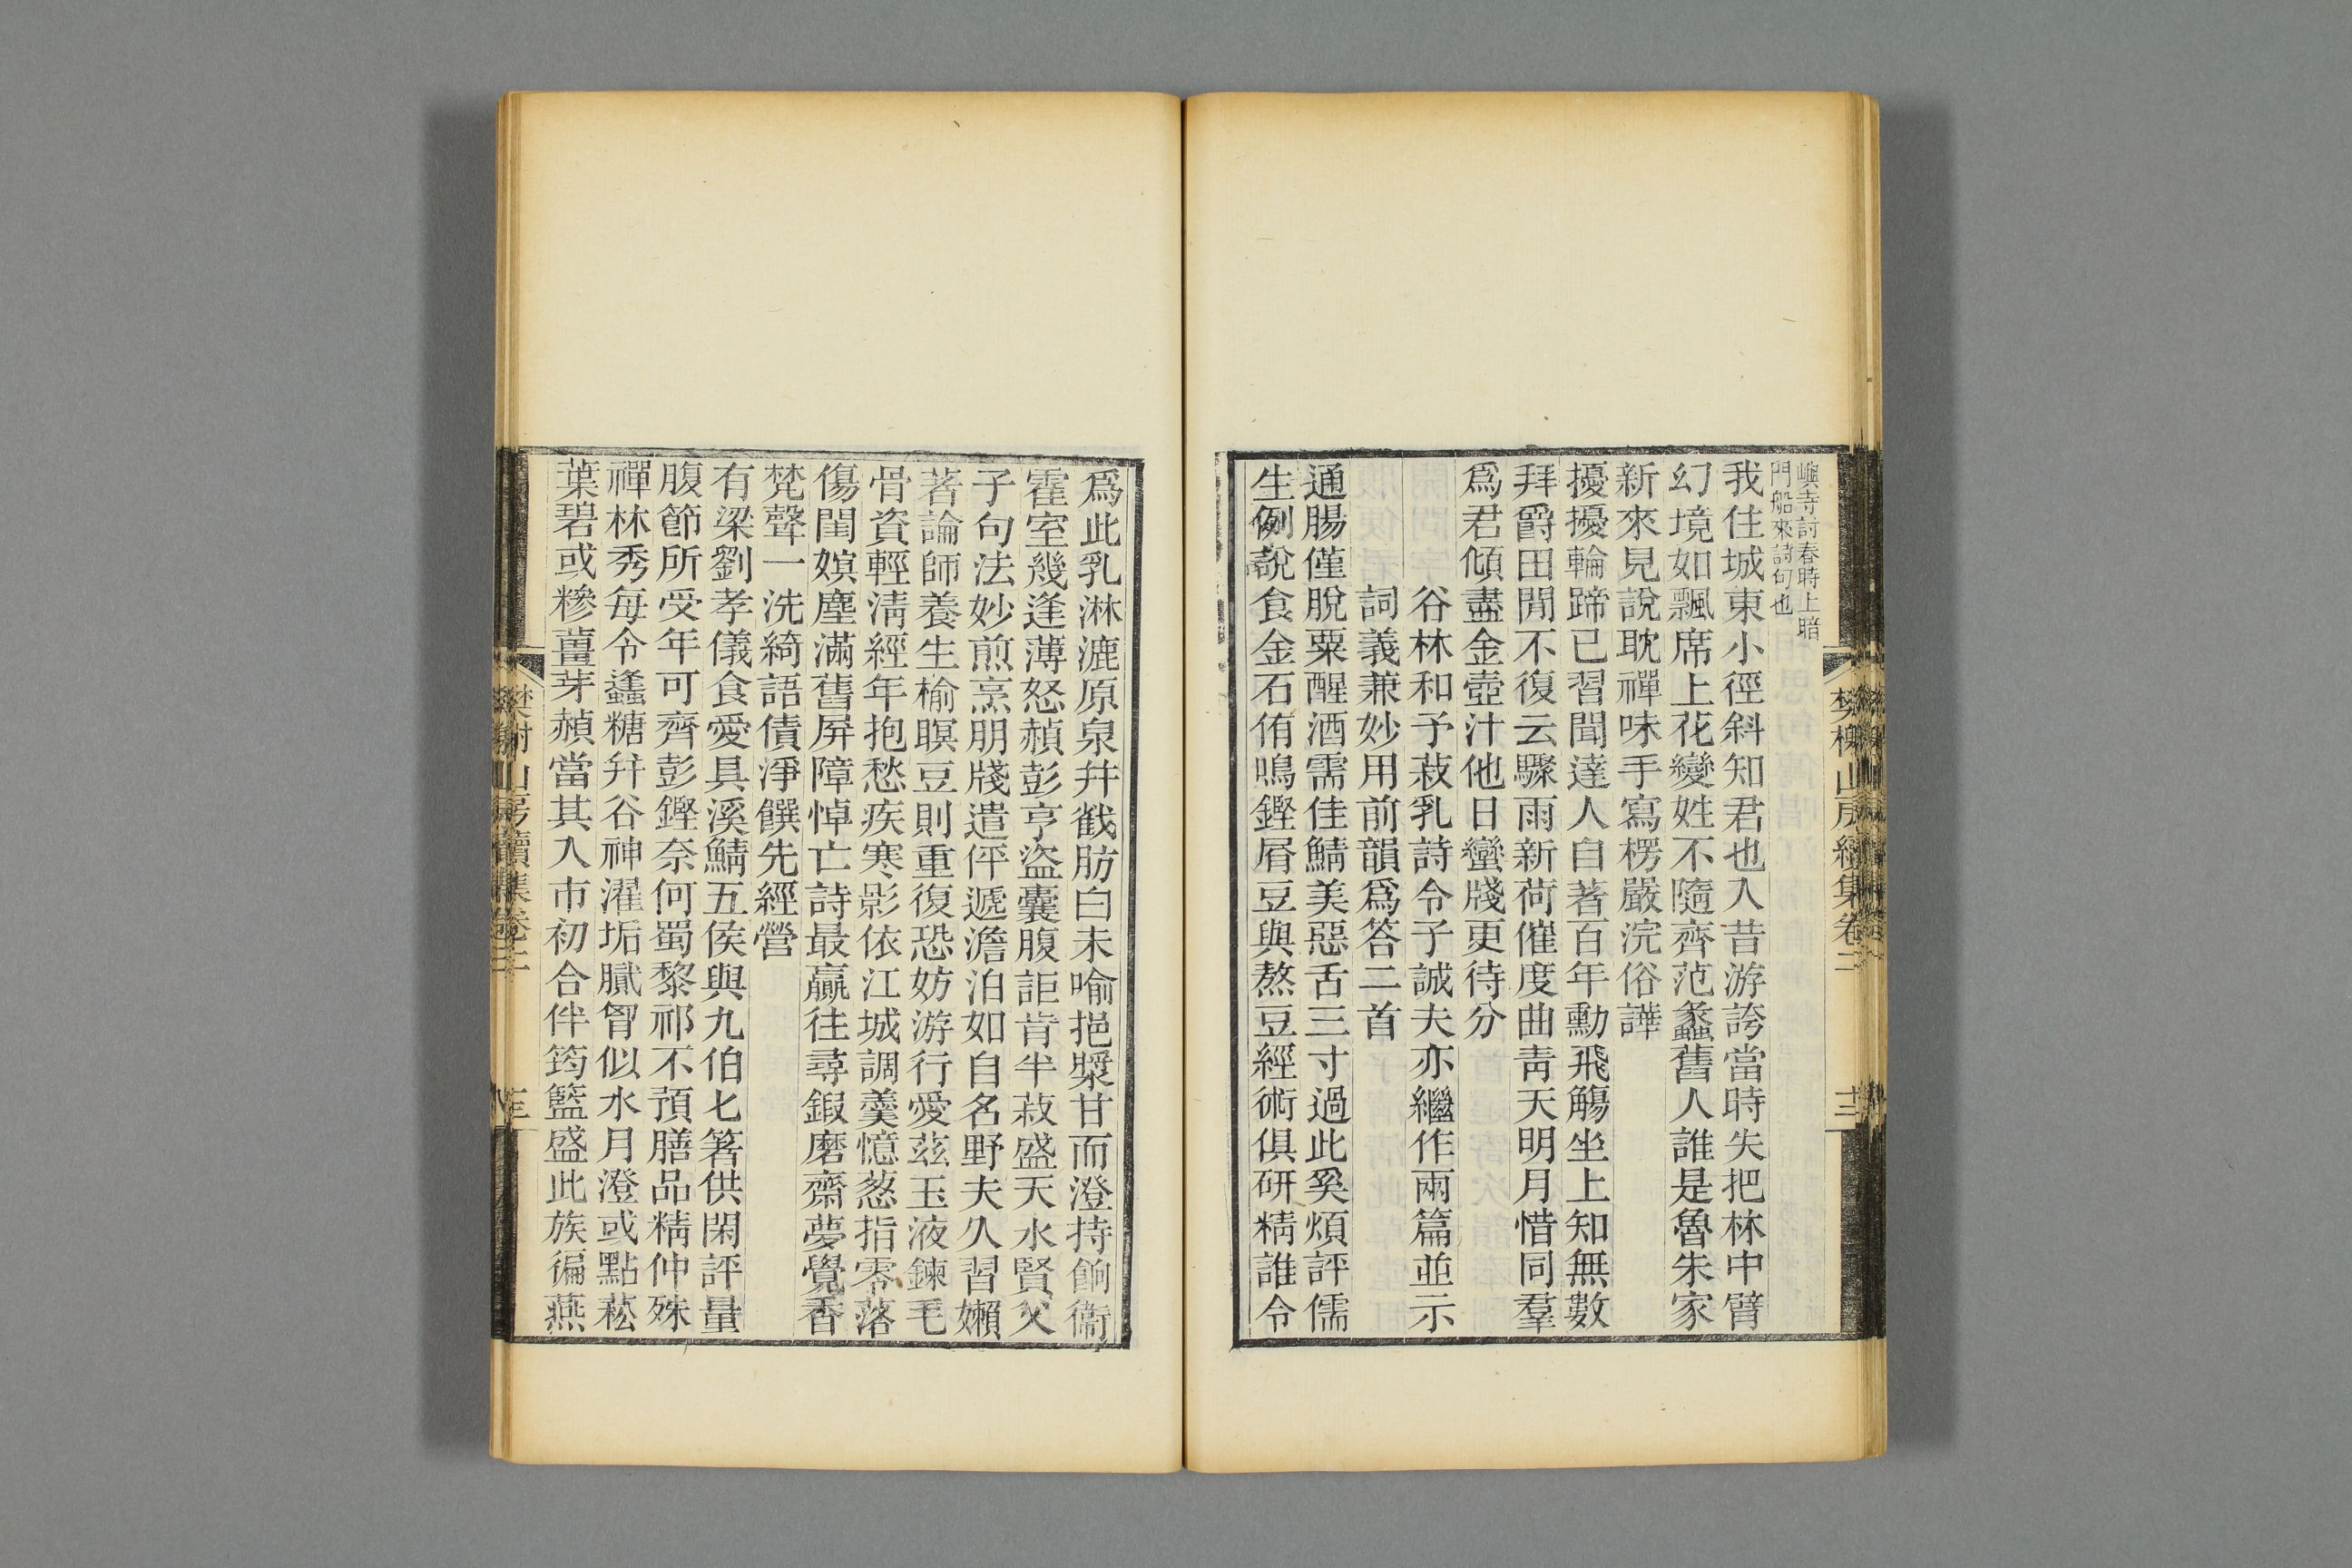 嶼寺討春時上暗
門船來詩句也
我住城東小徑斜知君也入昔游誇當時失把林中臂
幻境如飄席上花變姓不隨齊范蠡舊人誰是魯朱家
新來見說耽禪味手寫楞嚴浣俗譁
擾擾輪蹄已習聞達人自著百年勳飛觴坐上知無數
拜爵田間不復云驟雨新荷催度曲靑天明月惜同羣
爲君傾盡金壺汁他日蠻牋更待分
谷林和予菽乳詩令子誠夫亦繼作兩篇並示
詞義兼妙用前韻爲答二首
通腸僅脫粟醒酒需佳鯖美惡舌三寸過此奚煩評儒
生例說食金石侑鳴鏗屑豆與熬豆經術俱硏精誰令
樊榭山房續集卷二
十二
爲此乳淋漉原泉幷截肪白未喻挹漿甘而澄持餉衞
霍室幾逢薄怒赬彭亨盜囊腹詎肯半菽盛天水賢父
子句法妙煎烹朋牋遣伻遞澹泊如自名野夫久習嬾
著論師養生榆暝豆則重復恐妨游行愛茲玉液鍊毛
骨資輕淸經年抱愁疾寒影依江城調羹憶葱指零落
傷閨嬪塵滿舊屏障悼亡詩最贏往尋鍜磨齋夢覺香
梵聲一洗綺語債淨饌先經營
有梁劉孝儀食愛具溪鯖五侯與九伯匕箸供閑評量
腹節所受年可齊彭鏗奈何蜀黎祁不預膳品精仲殊
禪林秀每令蠭糖幷谷神濯垢膩胷似水月澄或點菘
葉碧或糝薑芽赬當其入市初合伴筠籃盛此族徧燕
樊榭山房續集卷二